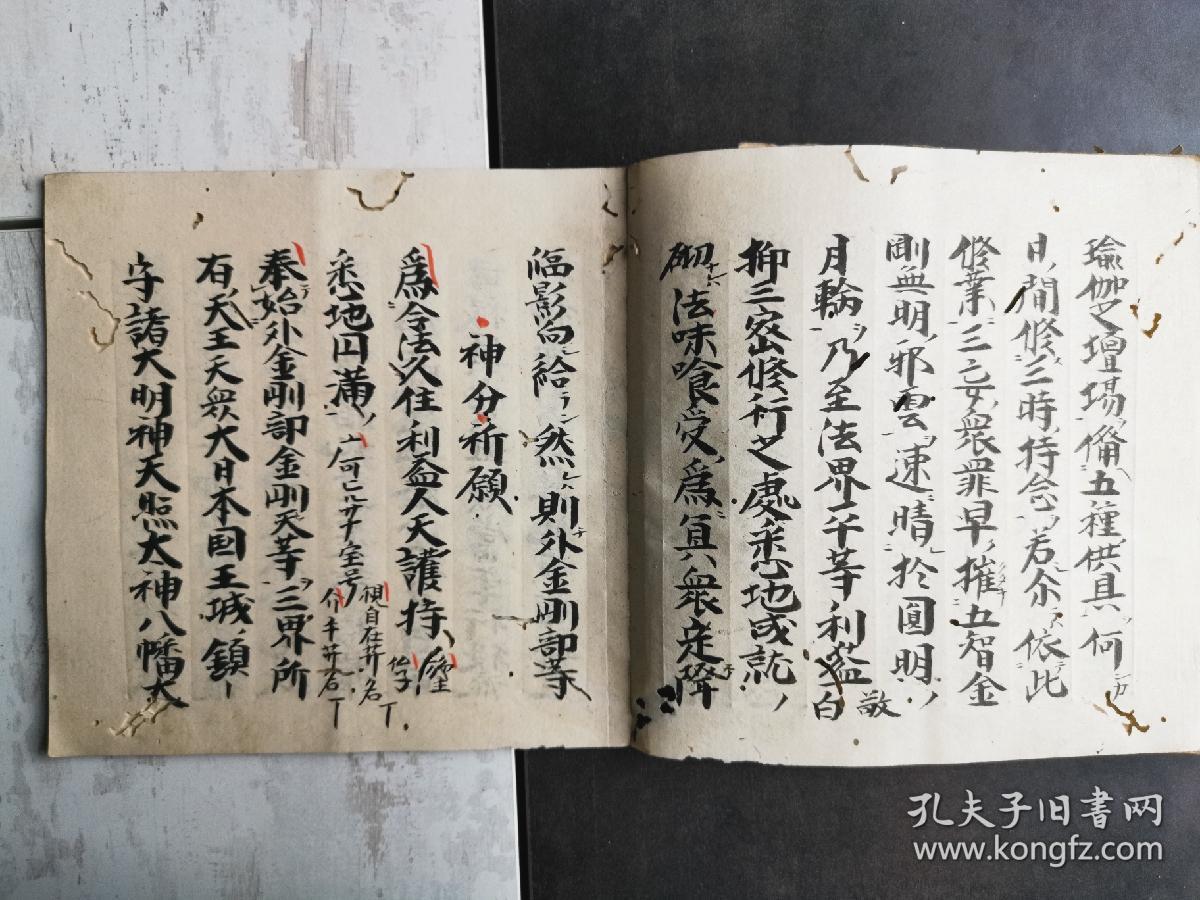 瑜伽之壇場備五種供具何
日間修三時持念若尒依此
修業三毒衆罪早摧五智金
剛無明邪雲速晴於圓明
月輪乃至法界平等利益
敬白
抑三密修行之處悉地成就
砌法味飡受爲冥衆定降
臨影向給然則外金剛部等
神分祈願
爲令法久住利益人天護持
悉地円満
奉始外金剛部金剛天等三界所
有天王天衆大日本國王城鎮
守諸大明神天照太神八幡大
孔夫子旧书网
www.kongfz.com